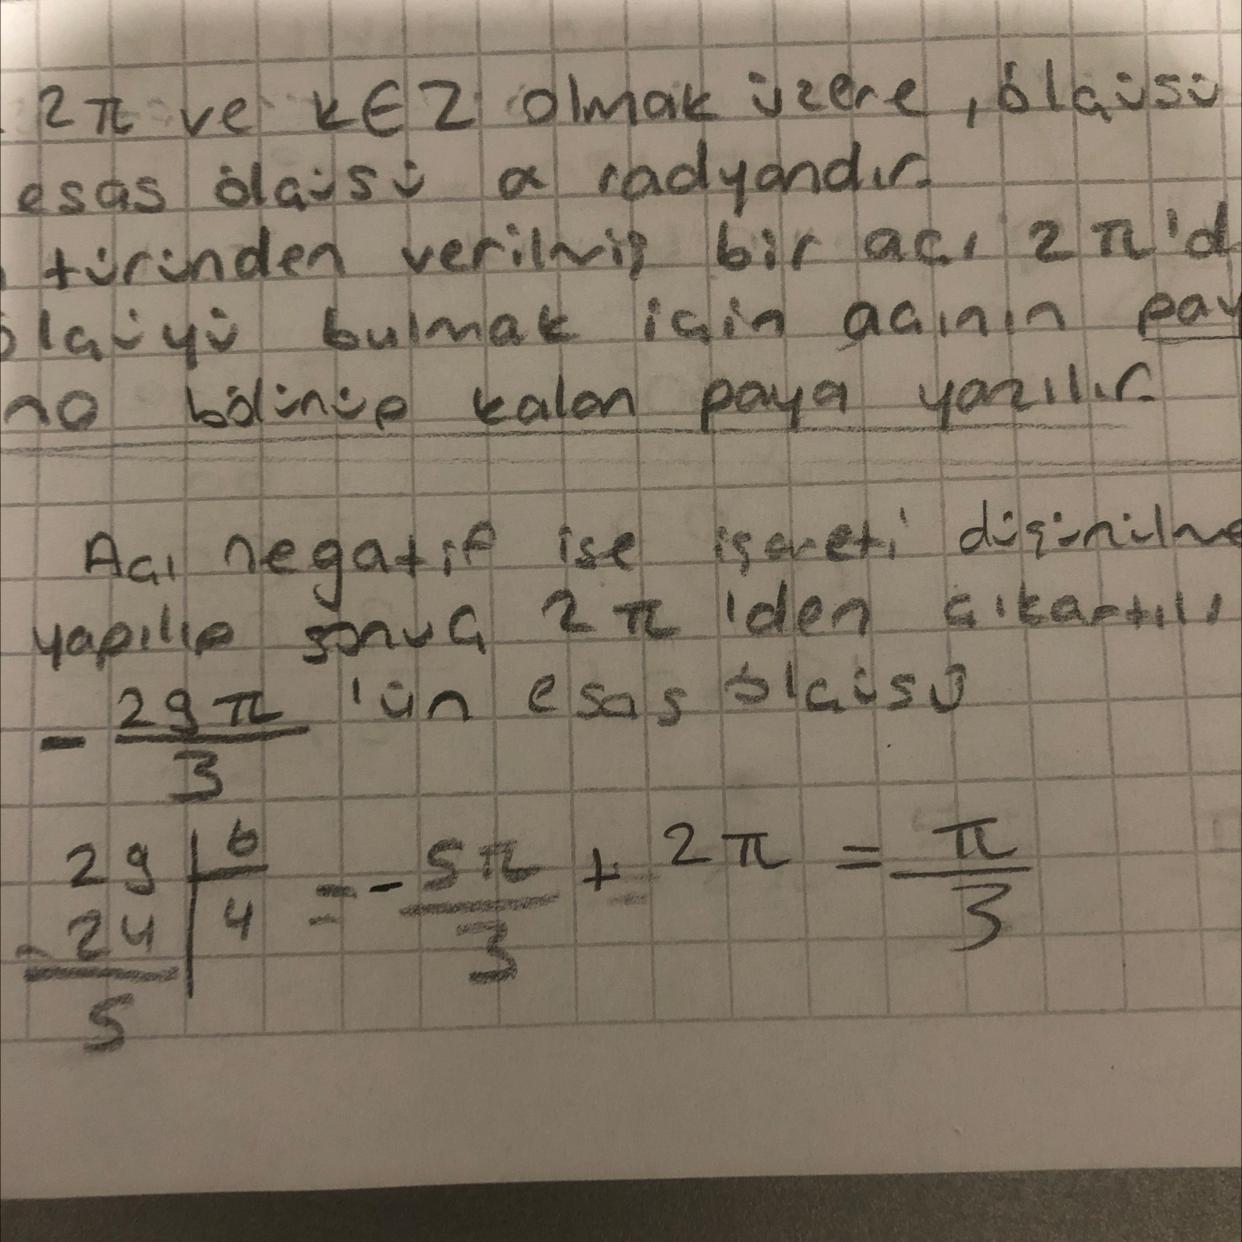 2π ve k∈Z olmak üzere, ölçüsü
esas ölçüsü α radyandır.
türünden verilmiş bir açı 2π'd
ölçüyü bulmak için açının pay
na bölünüp kalan paya yazılır.
Açı negatif ise işareti düşünülme
yapılıp sonuç 2π'den çıkartılı
-29π/3 'ün esas ölçüsü
29 | 6 = -5π/3 + 2π = π/3
-24 | 4
5